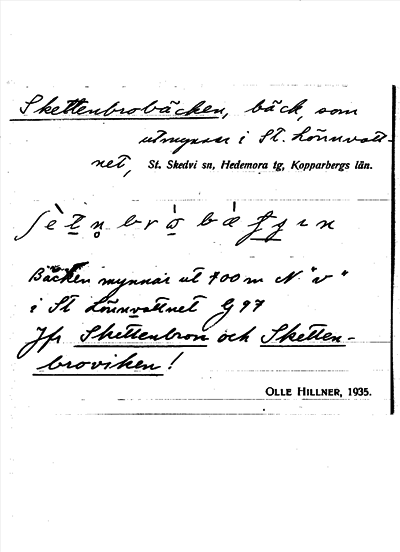 Skettenbrobäcken, bäck, som
utmynnar i St. Lönnvatt-
net, St. Skedvi sn, Hedemora tg, Kopparbergs län.
Bäcken mynnar ut 700 m N. "v"
i St Lönnvattnet G 97
Jfr Skettenbron och Sketten-
broviken!
OLLE HILLNER, 1935.